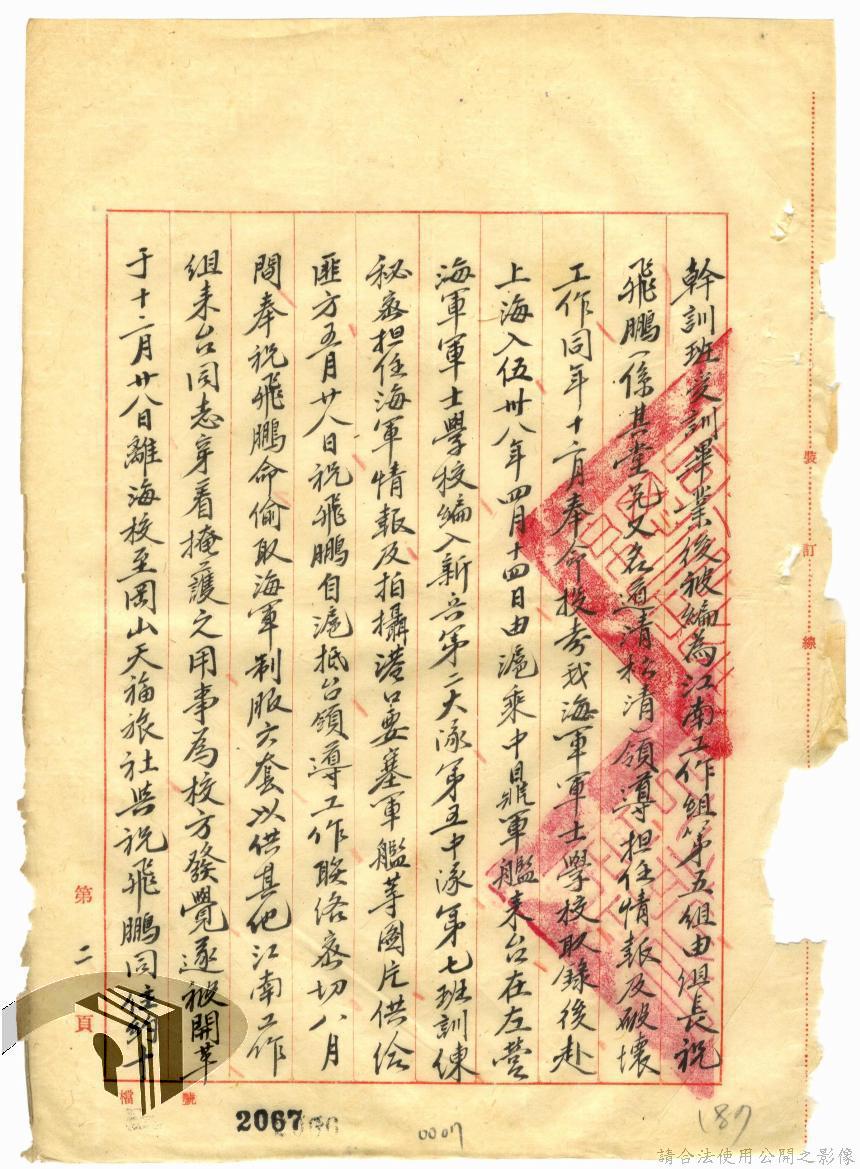 幹訓班受訓畢業後被編為江南工作組第五組由組長祝
飛鵬(係其堂兄又名道清松清)領導担任情報及破壞
工作同年十二月奉命投考我海軍軍士學校取錄後赴
上海入伍卅八年四月十四日由滬乘中鼎軍艦來台在左營
海軍軍士學校編入新兵第二大隊第五中隊第七班訓練
秘密担任海軍情報及拍攝港口要塞軍艦等圖片供給
匪方五月廿八日祝飛鵬自滬抵台領導工作聯絡密切八月
間奉祝飛鵬命偷取海軍制服六套以供其他江南工作
組來台同志穿着掩護之用事為校方發覺遂被開革
于十二月廿八日離海校至岡山天福旅社與祝飛鵬同住約十
裝訂線
第二頁
檔號
2067
0007
187
請合法使用公開之影像